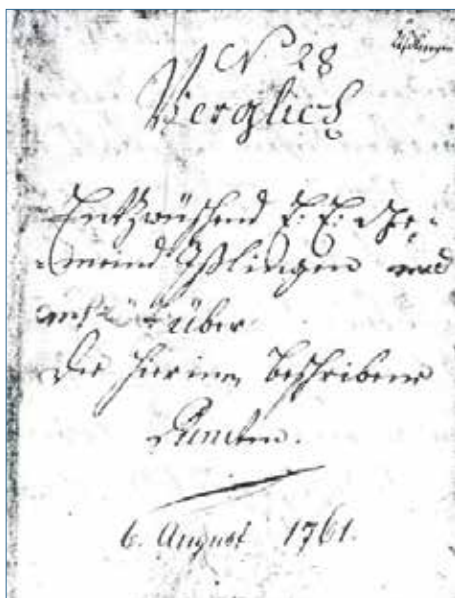 N 28
Verglich
Entzwüschend E. E. Ge-
meind Ißlingen und
über
die hierinn beschribene
Puncten.
6. August 1761.